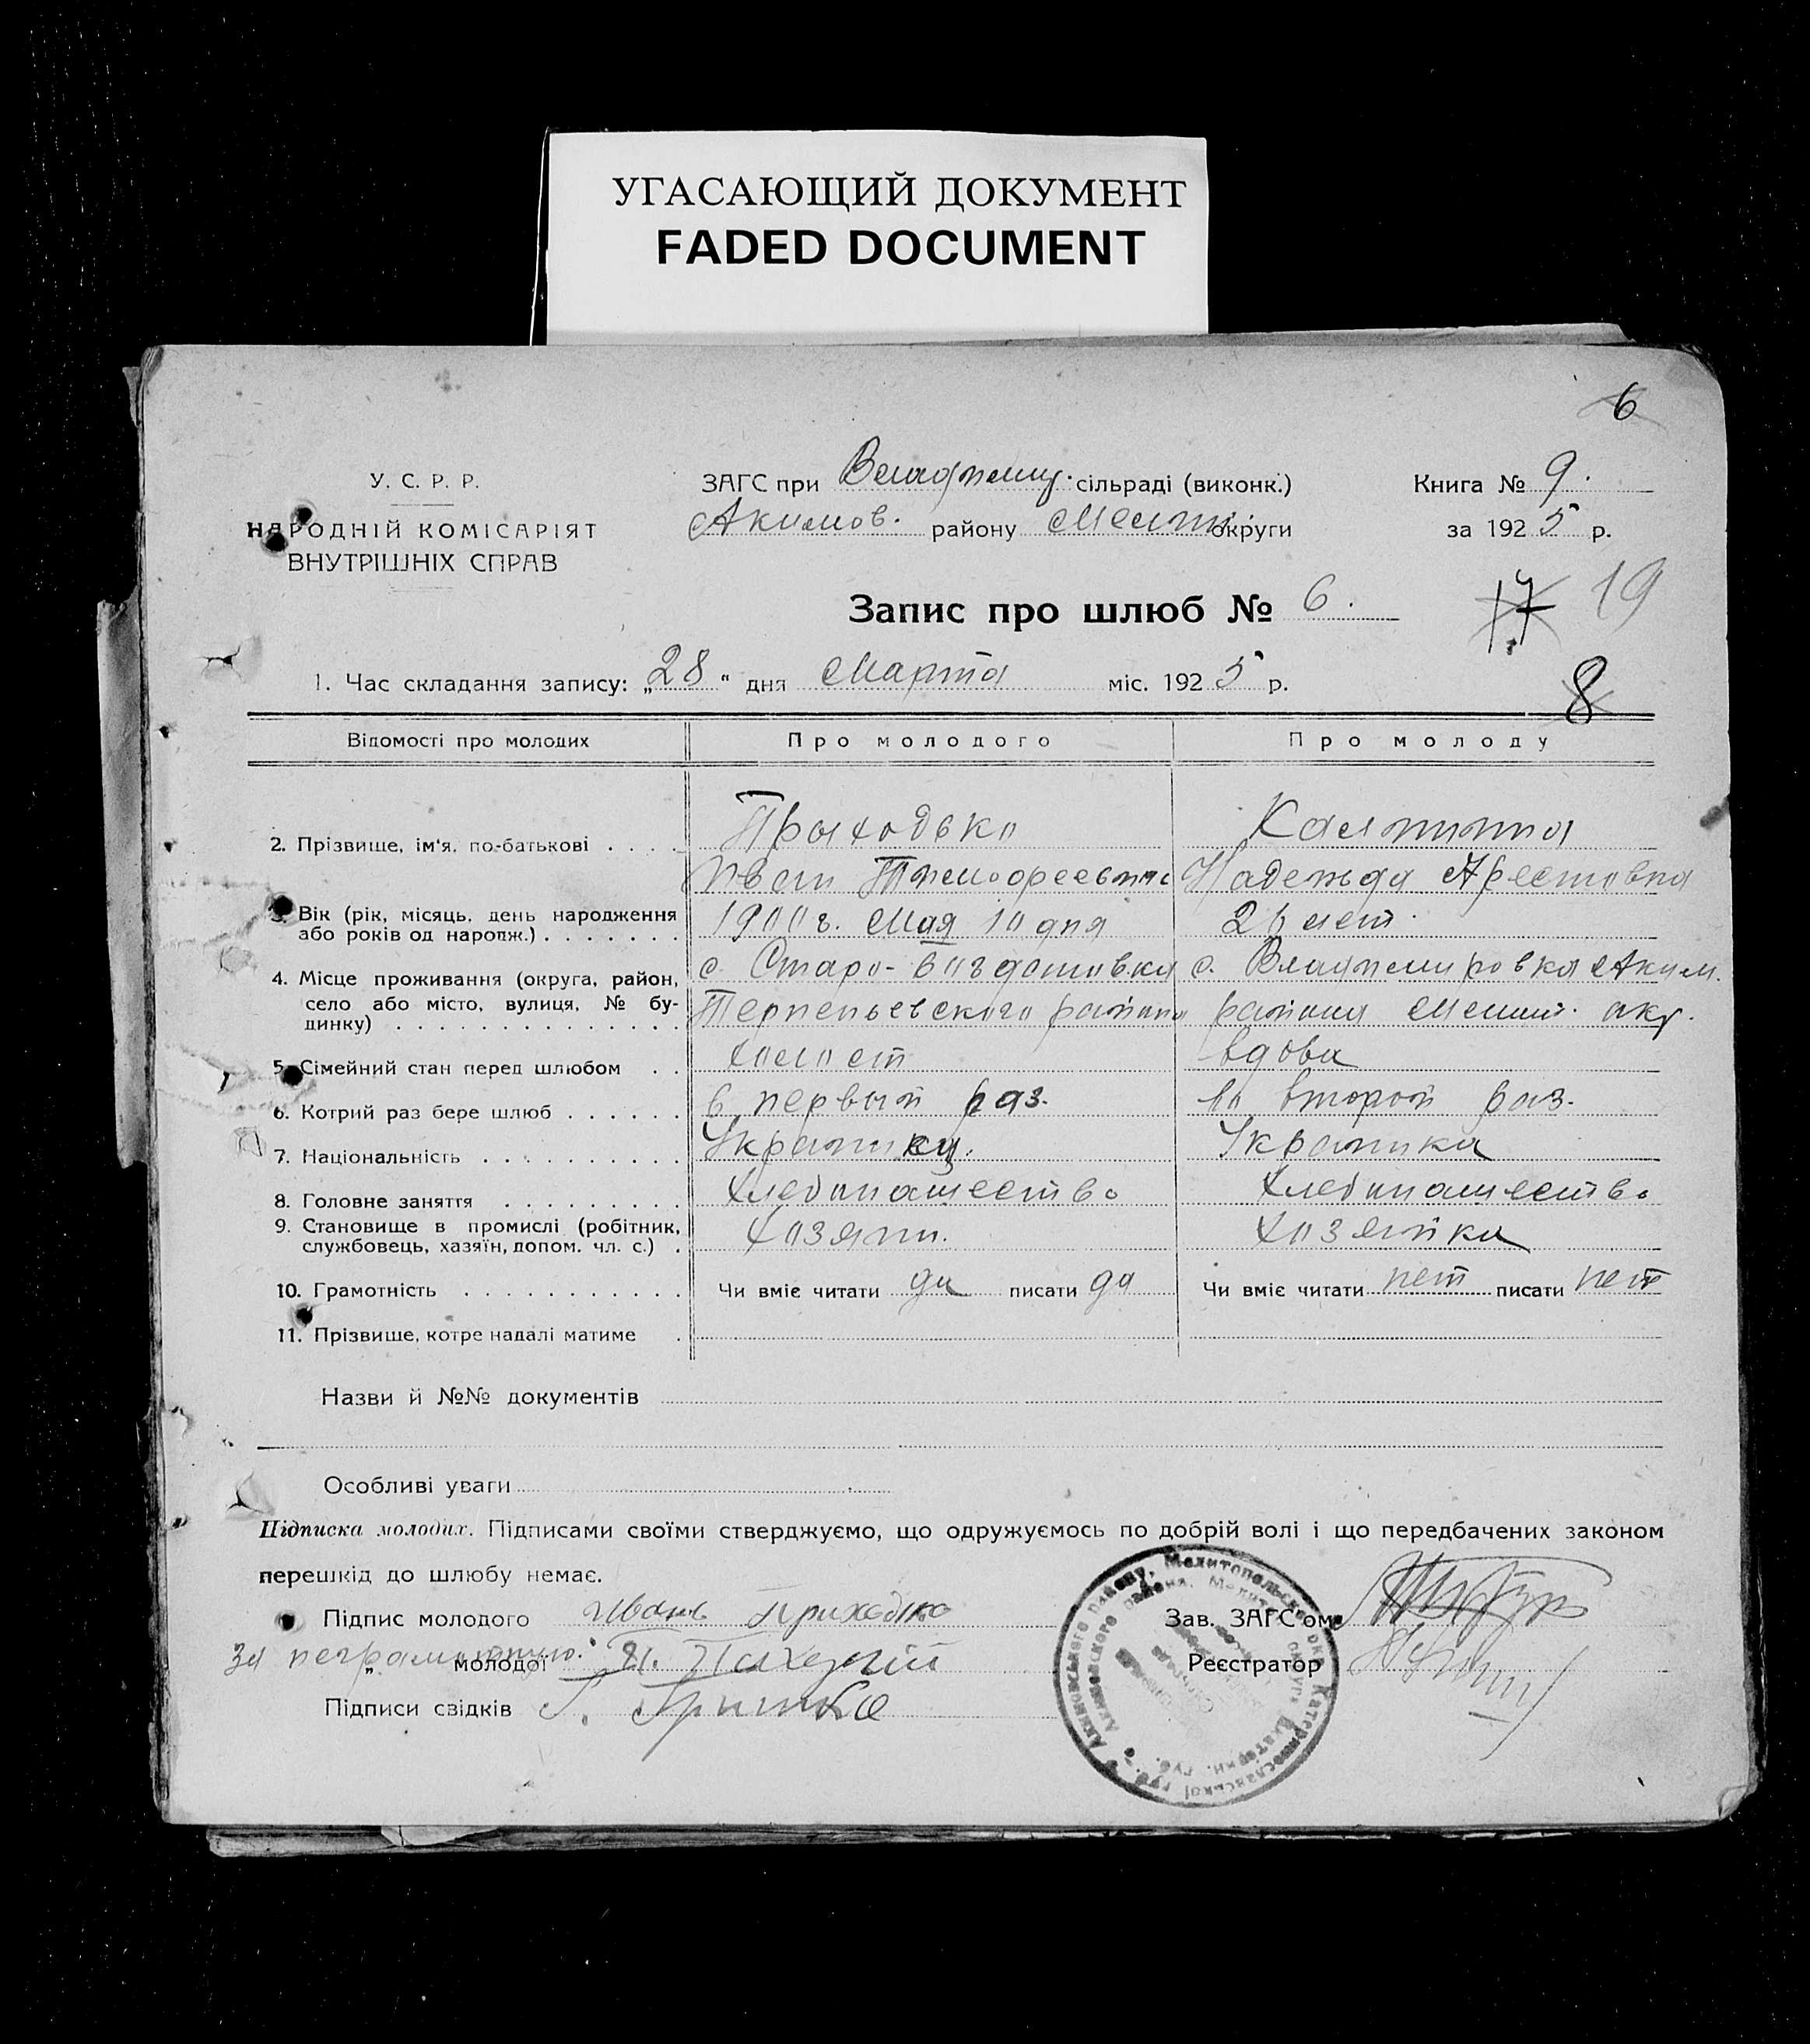 УГАСАЮЩИЙ ДОКУМЕНТ
FADED DOCUMENT
6
У. С. Р. Р.
НАРОДНІЙ КОМІСАРІЯТ
ВНУТРІШНІХ СПРАВ
ЗАГС при Владимир. сільраді (виконк.)
Акимов. району Мелит. округи
Книга № 9.
за 1925 р.
Запис про шлюб № 6.
17 19
1. Час складання запису: „28" дня Марта міс. 1925 р.
8
Відомості про молодих Про молодого Про молоду
2. Прізвище, ім'я, по-батькові . . . . Приходько Калинина
Иван Тимофеевич Надежда Арестовна
3. Вік (рік, місяць, день народження
або років од народж.) . . . . . . . 1900 г. Мая 10 дня 26 лет.
4. Місце проживання (округа, район, с. Старо-Богдановка с. Владимировка Аким.
село або місто, вулиця, № бу-
динку) . . . . . . . . . . . . . . Терпеньевского района района Мелит. окр.
5. Сімейний стан перед шлюбом . . холост вдова
6. Котрий раз бере шлюб . . . . . . в первый раз. во второй раз.
7. Національність . . . . . . . . . . Украинец. Украинка
8. Головне заняття . . . . . . . . . хлебопашество хлебопашество
9. Становище в промислі (робітник,
службовець, хазяїн, допом. чл. с.) . хозяин. хозяйка
10. Грамотність . . . . . . . . . . . Чи вміє читати да писати да Чи вміє читати нет писати нет
11. Прізвище, котре надалі матиме .
Назви й №№ документів
Особливі уваги
Підписка молодих. Підписами своїми стверджуємо, що одружуємось по добрій волі і що передбачених законом
перешкід до шлюбу немає.
Підпис молодого Иван Приходько
Зав. ЗАГС'ом
За неграмотную: „ молодої
Реєстратор
Підписи свідків Г. Гришко
Акимовського району, Мелитопольської окр. Катеринославської губ.